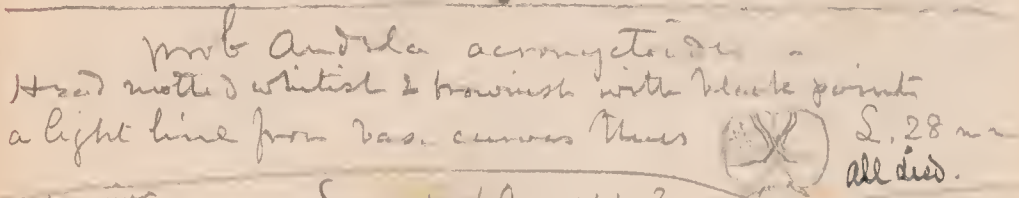 prob Andela acronyctoides -
Head mottled whitish & brownish with black points
a light line from base curves thus L. 28 mm
all died.